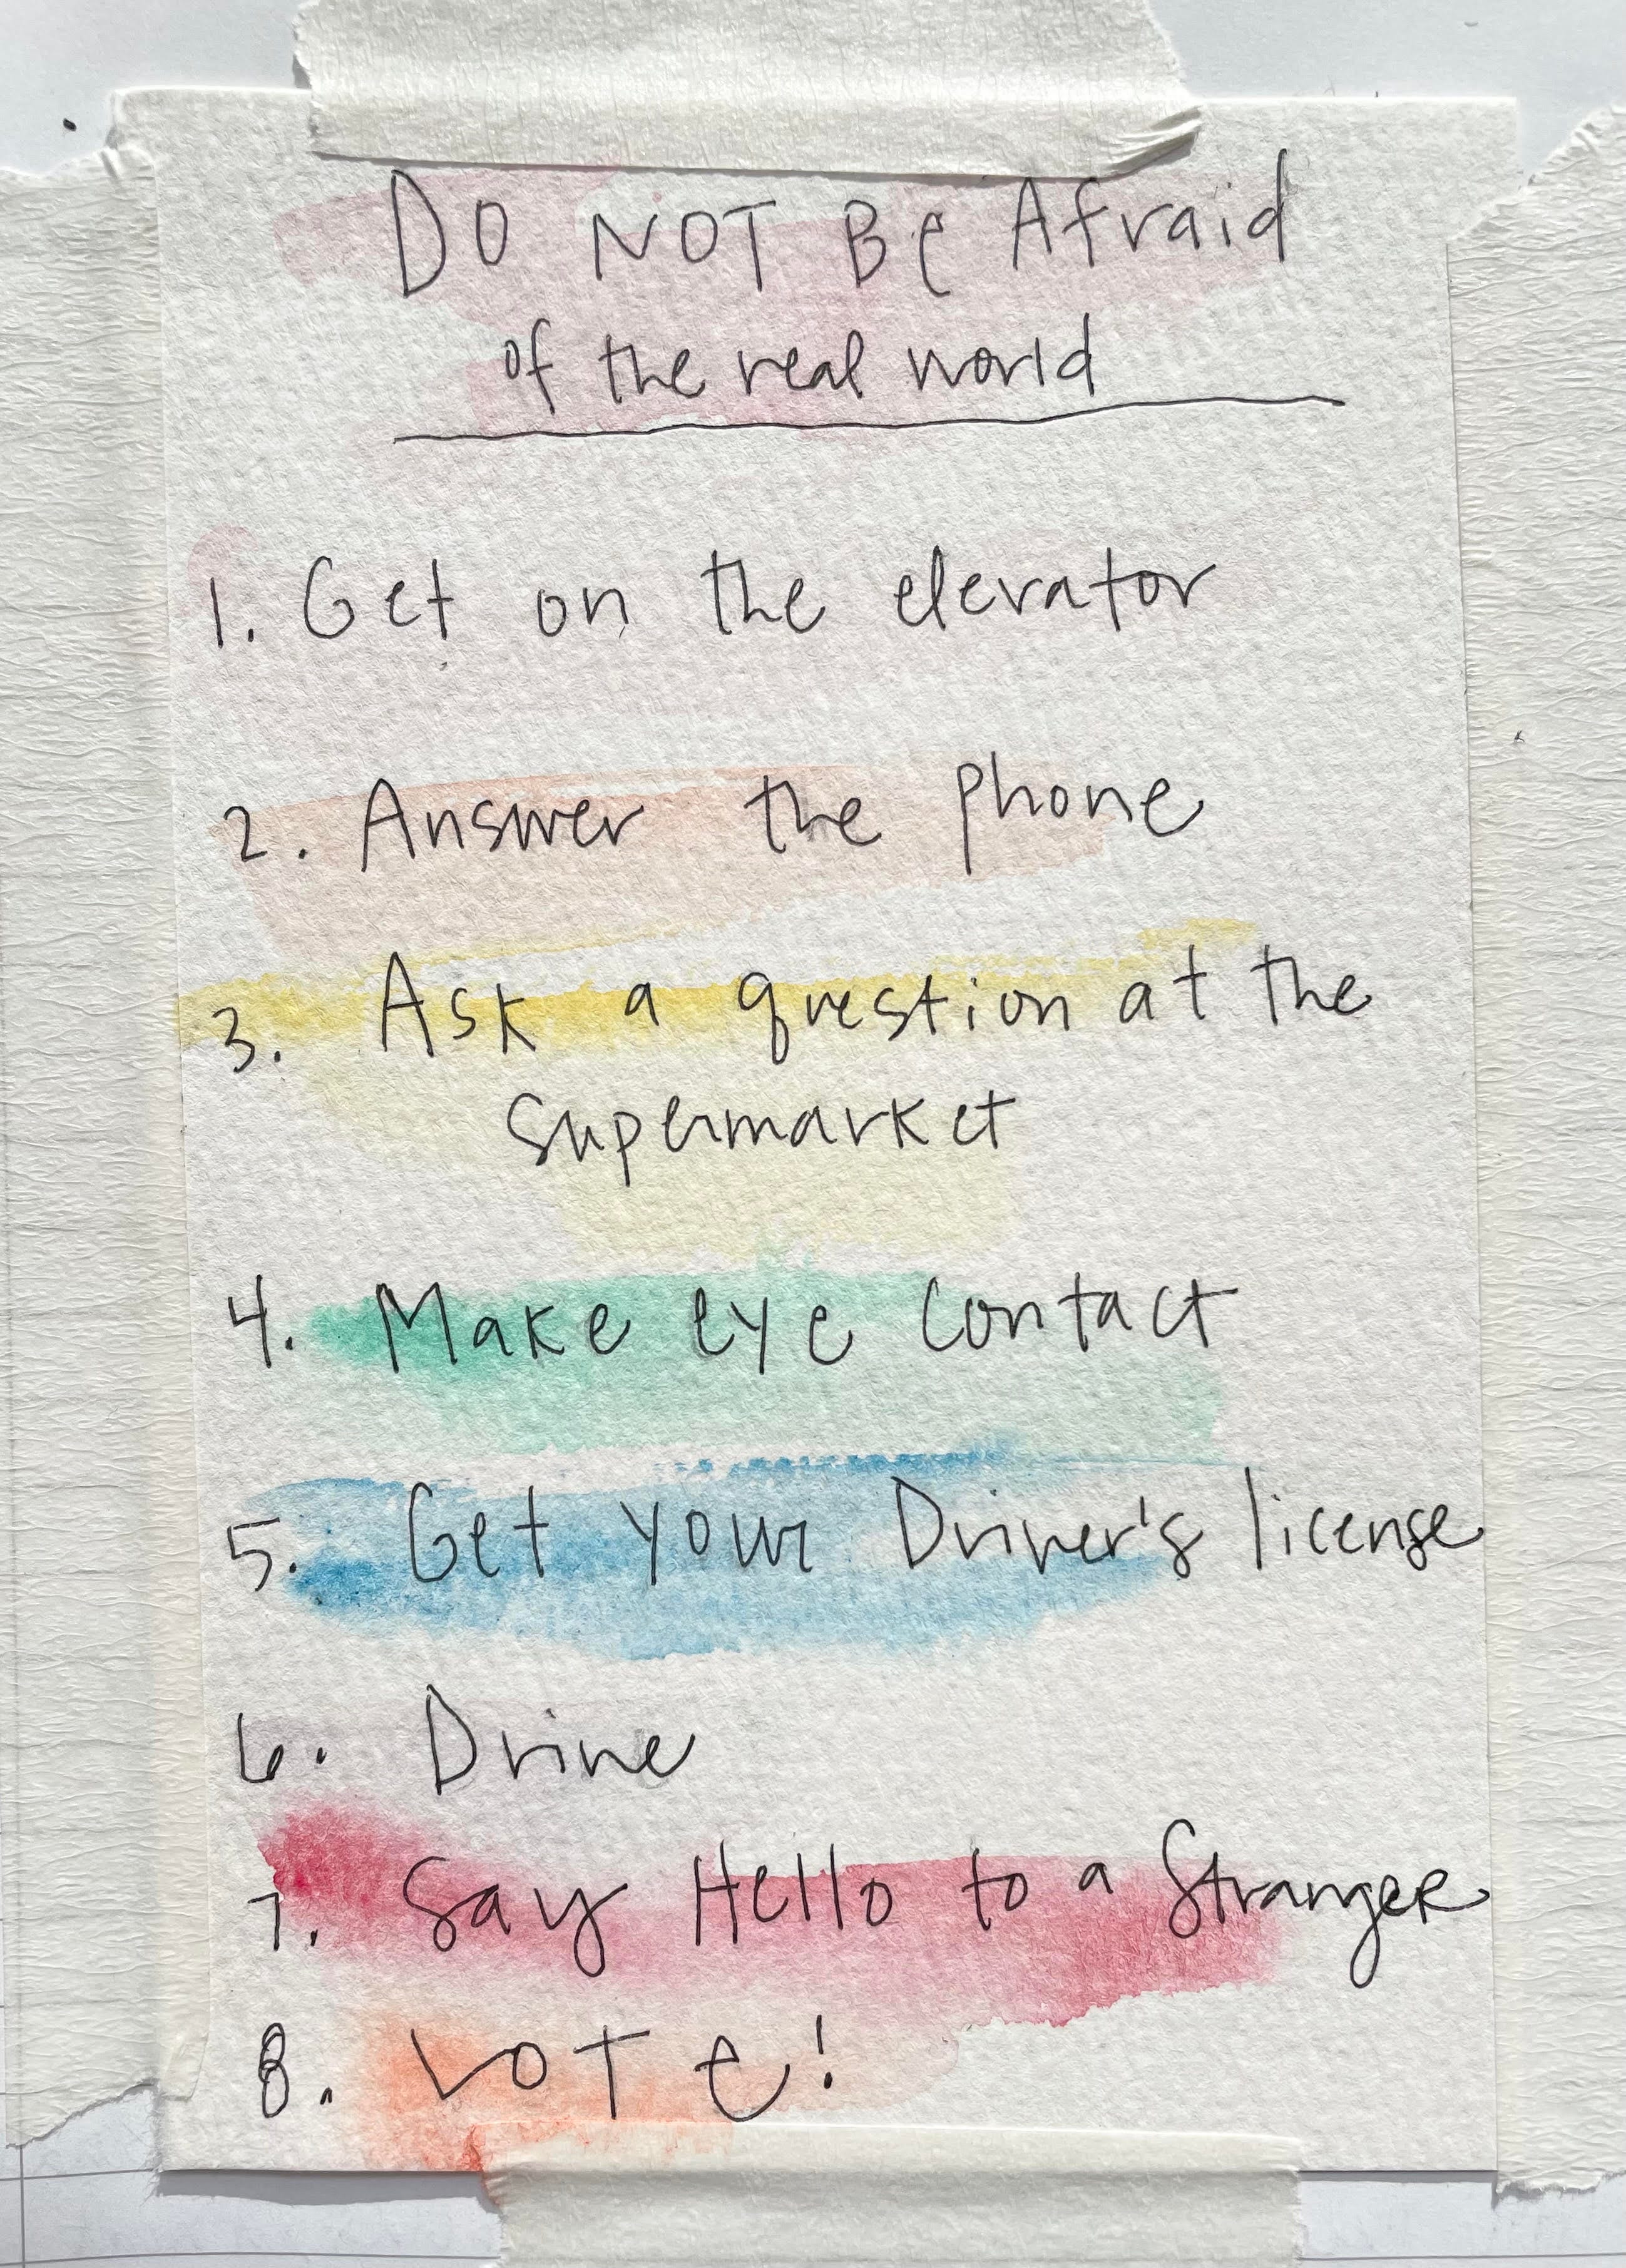 DO NOT Be Afraid
of the real world
1. Get on the elevator
2. Answer the phone
3. Ask a question at the
supermarket
4. Make eye contact
5. Get your Driver's license
6. Drive
7. Say Hello to a Stranger
8. Vote!